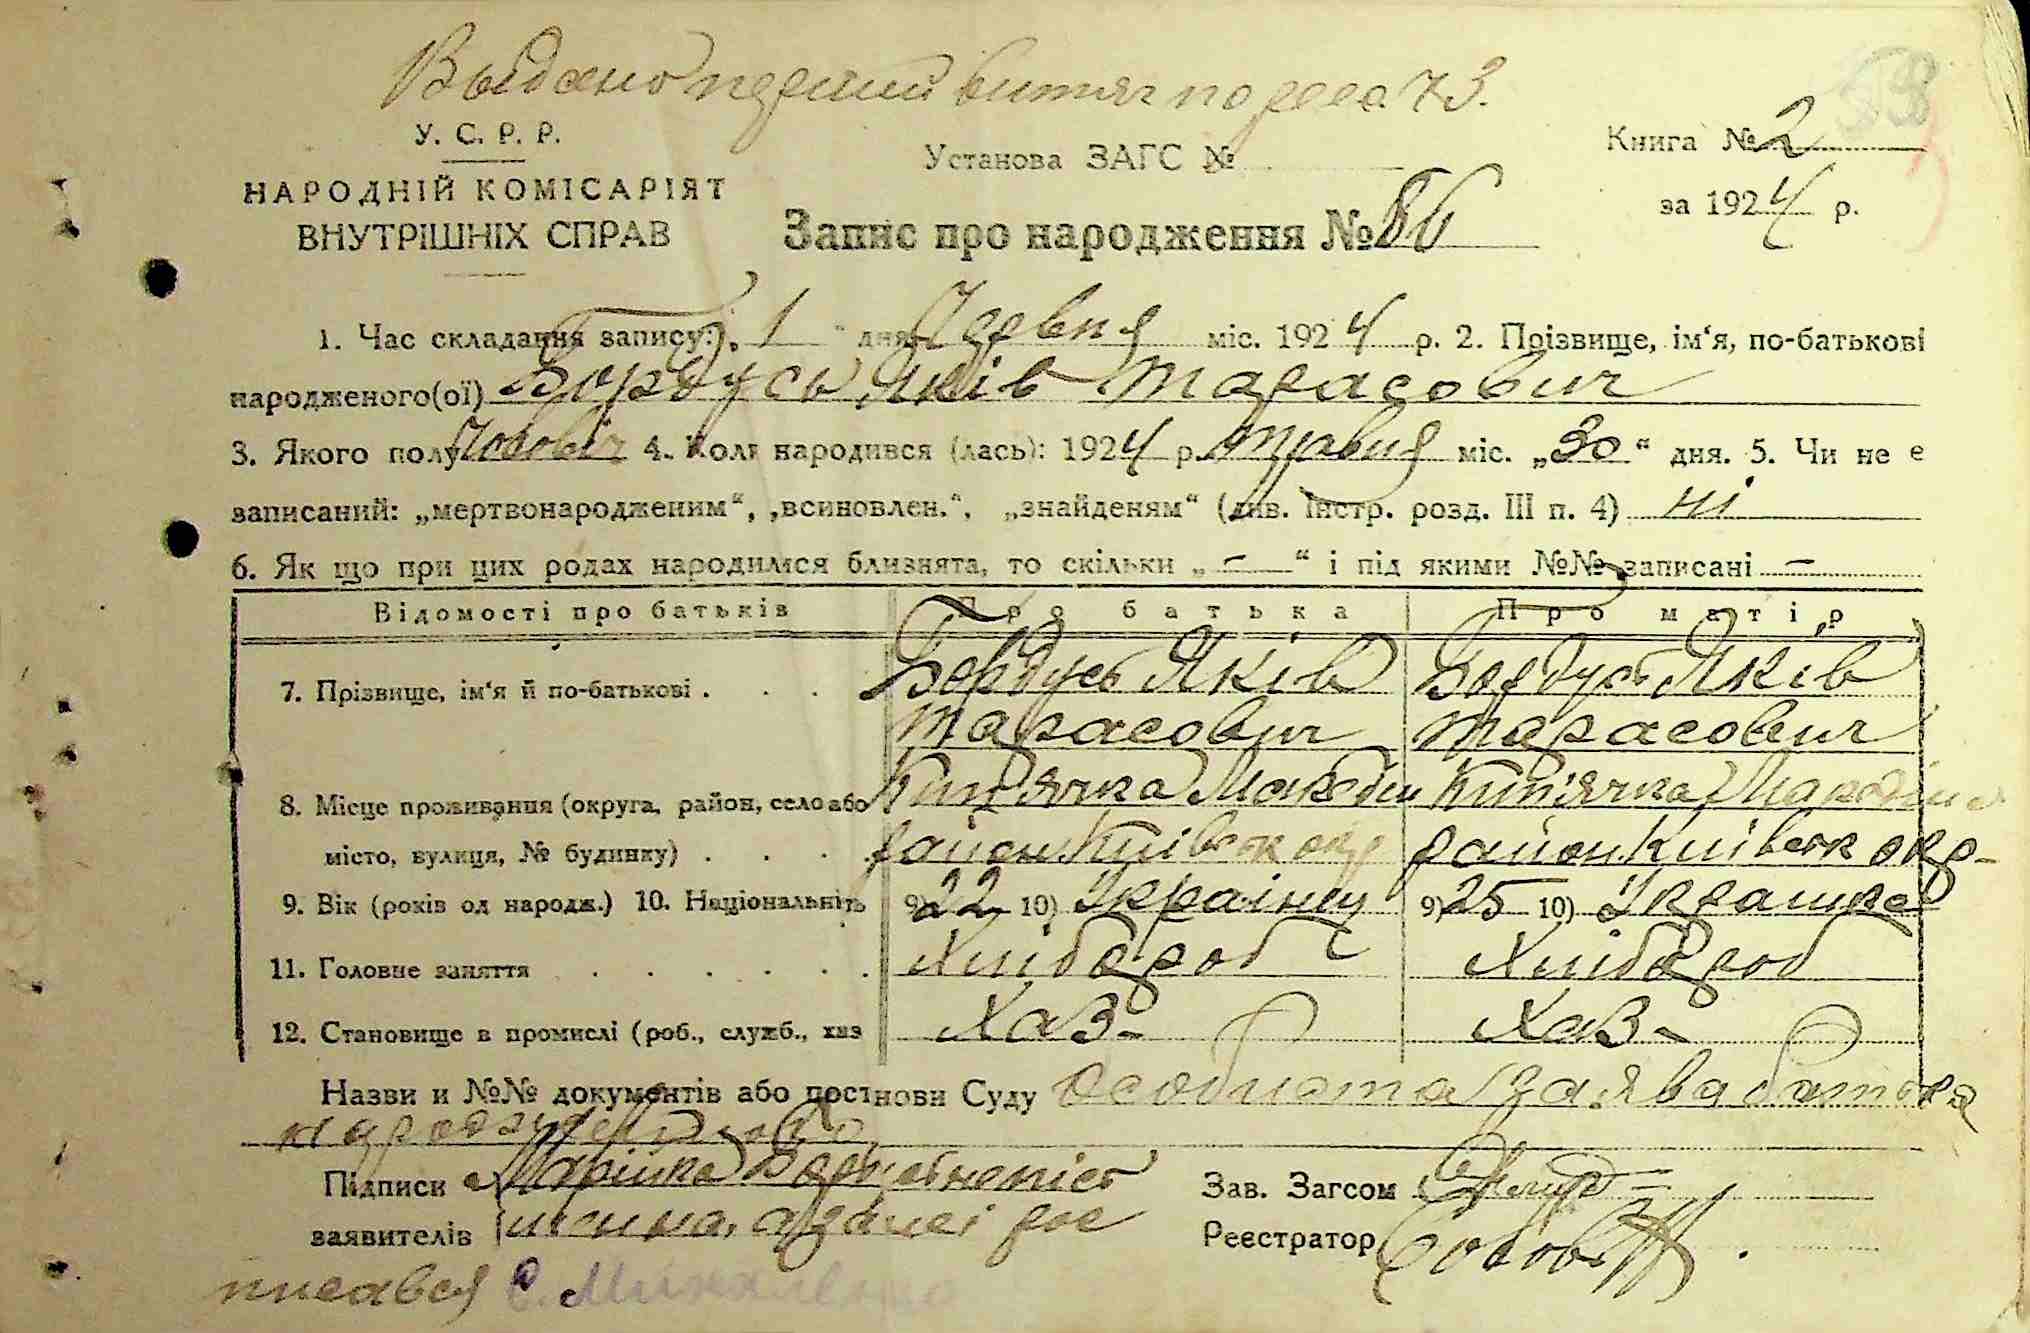 Выдано перший витяг по реес 73.
53
У. С. Р. Р.
НАРОДНІЙ КОМІСАРІЯТ
ВНУТРІШНІХ СПРАВ
Установа ЗАГС №
Книга № 2
за 1924 р.
Запис про народження № 86
1. Час складання запису: „1“ дня Червня міс. 1924 р. 2. Прізвище, ім‘я, по-батькові
народженого(ої) Бордусь Яків Тарасович
3. Якого полу Чоловіч 4. Коли народився (лась): 1924 р. Травня міс. „30“ дня. 5. Чи не є
записаний: „мертвонародженим“, „всиновлен.“, „знайденям“ (див. Інстр. розд. III п. 4) ні
6. Як що при цих родах народилися близнята, то скільки „ – “ і під якими №№ записані –
Відомості про батьків Про батька Про матір
7. Прізвище, ім‘я й по-батькові . . . Бордусь Яків Бордусь Яків
Тарасович Тарасович
8. Місце проживання (округа, район, село або Кип‘ячка Макаові Кип‘ячка
місто, вулиця, № будинку) . . . . район Київськ окр район Київськ окр-
9. Вік (років од народж.) 10. Національність 9) 22 10) Українец 9) 25 10) Украинка
11. Головне заняття . . . . . . Хлібороб Хлібороб
12. Становище в промислі (роб., служб., хаз Хаз- Хаз-
Назви и №№ документів або постанови Суду Особиста заява батька
народженого
Підписи Марійка неписьм
заявителів а за неі рос
писався Є.
Зав. Загсом
Реєстратор